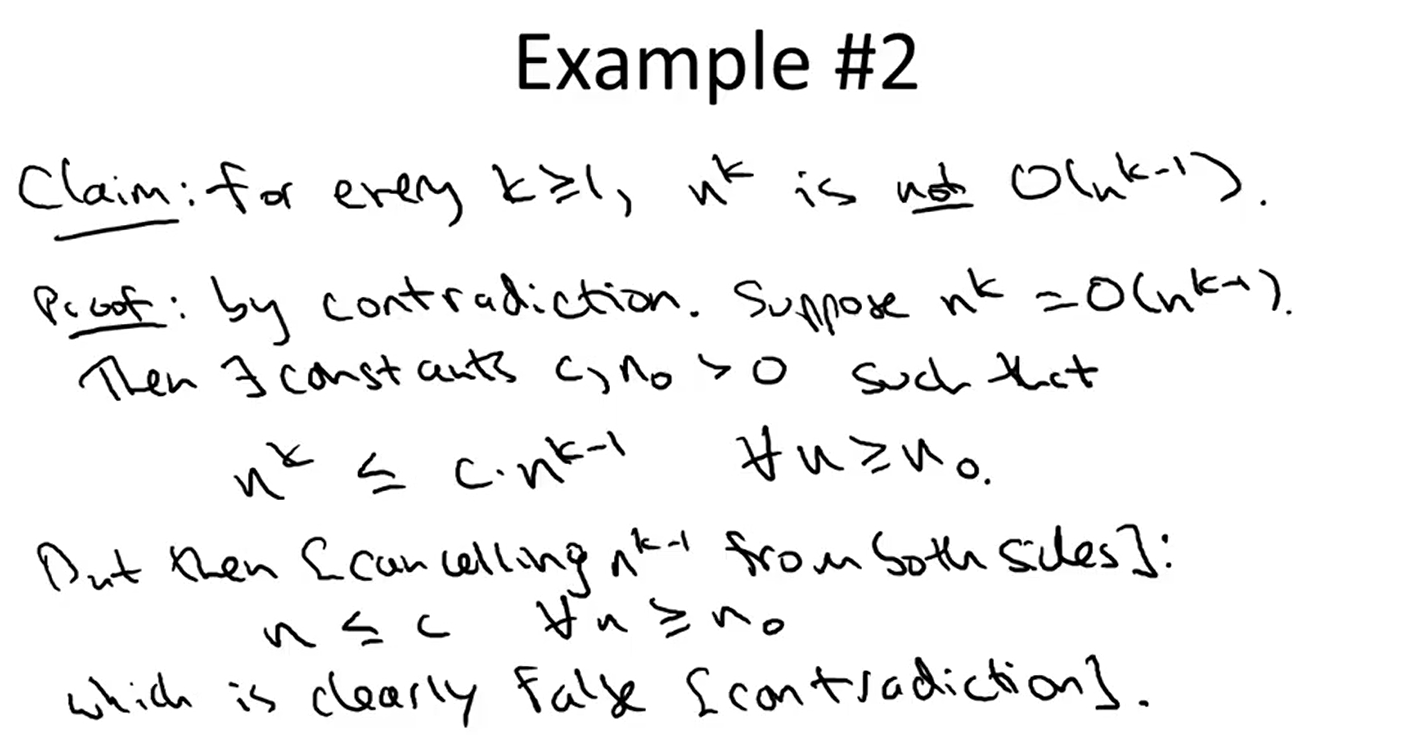 Example #2
Claim: for every k≥1, n^k is not O(n^{k-1}).
Proof: by contradiction. Suppose n^k = O(n^{k-1}).
Then ∃ constants c, n₀ > 0 such that
n^k ≤ c·n^{k-1} ∀n ≥ n₀.
But then [cancelling n^{k-1} from both sides]:
n ≤ c ∀n ≥ n₀
which is clearly False [contradiction].